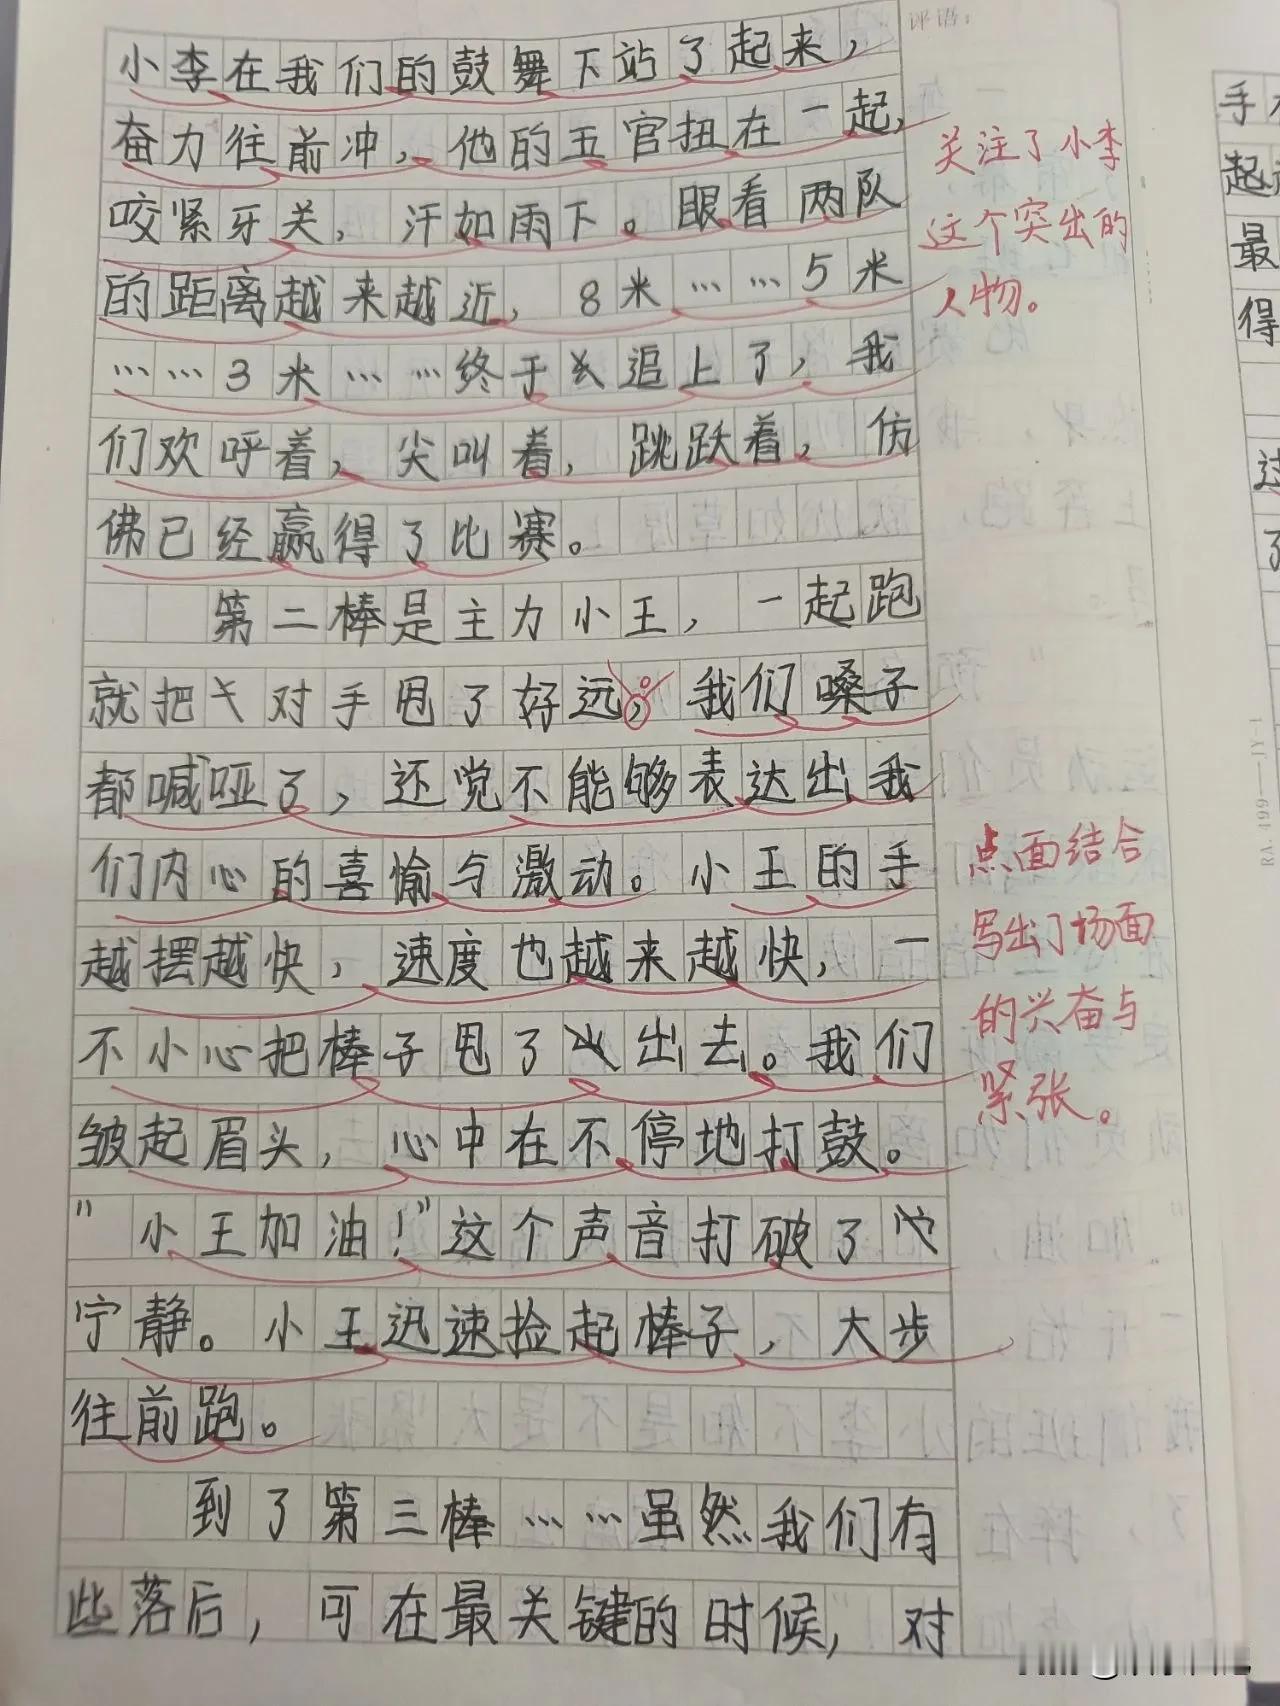 评语：
小李在我们的鼓舞下站了起来，
奋力往前冲，他的五官扭在一起，
咬紧牙关，汗如雨下。眼看两队
的距离越来越近，8米……5米
……3米……终于追上了，我
们欢呼着，尖叫着，跳跃着，仿
佛已经赢得了比赛。
第二棒是主力小王，一起跑
就把对手甩了好远。我们嗓子
都喊哑了，还觉不能够表达出我
们内心的喜愉与激动。小王的手
越摆越快，速度也越来越快，一
不小心把棒子甩了出去。我们
皱起眉头，心中在不停地打鼓。
“小王加油！”这个声音打破了
宁静。小王迅速捡起棒子，大步
往前跑。
到了第三棒……虽然我们有
些落后，可在最关键的时候，对
关注了小李
这个突出的
人物。
点面结合
写出了场面
的兴奋与
紧张。
手
起
最
得
过
了